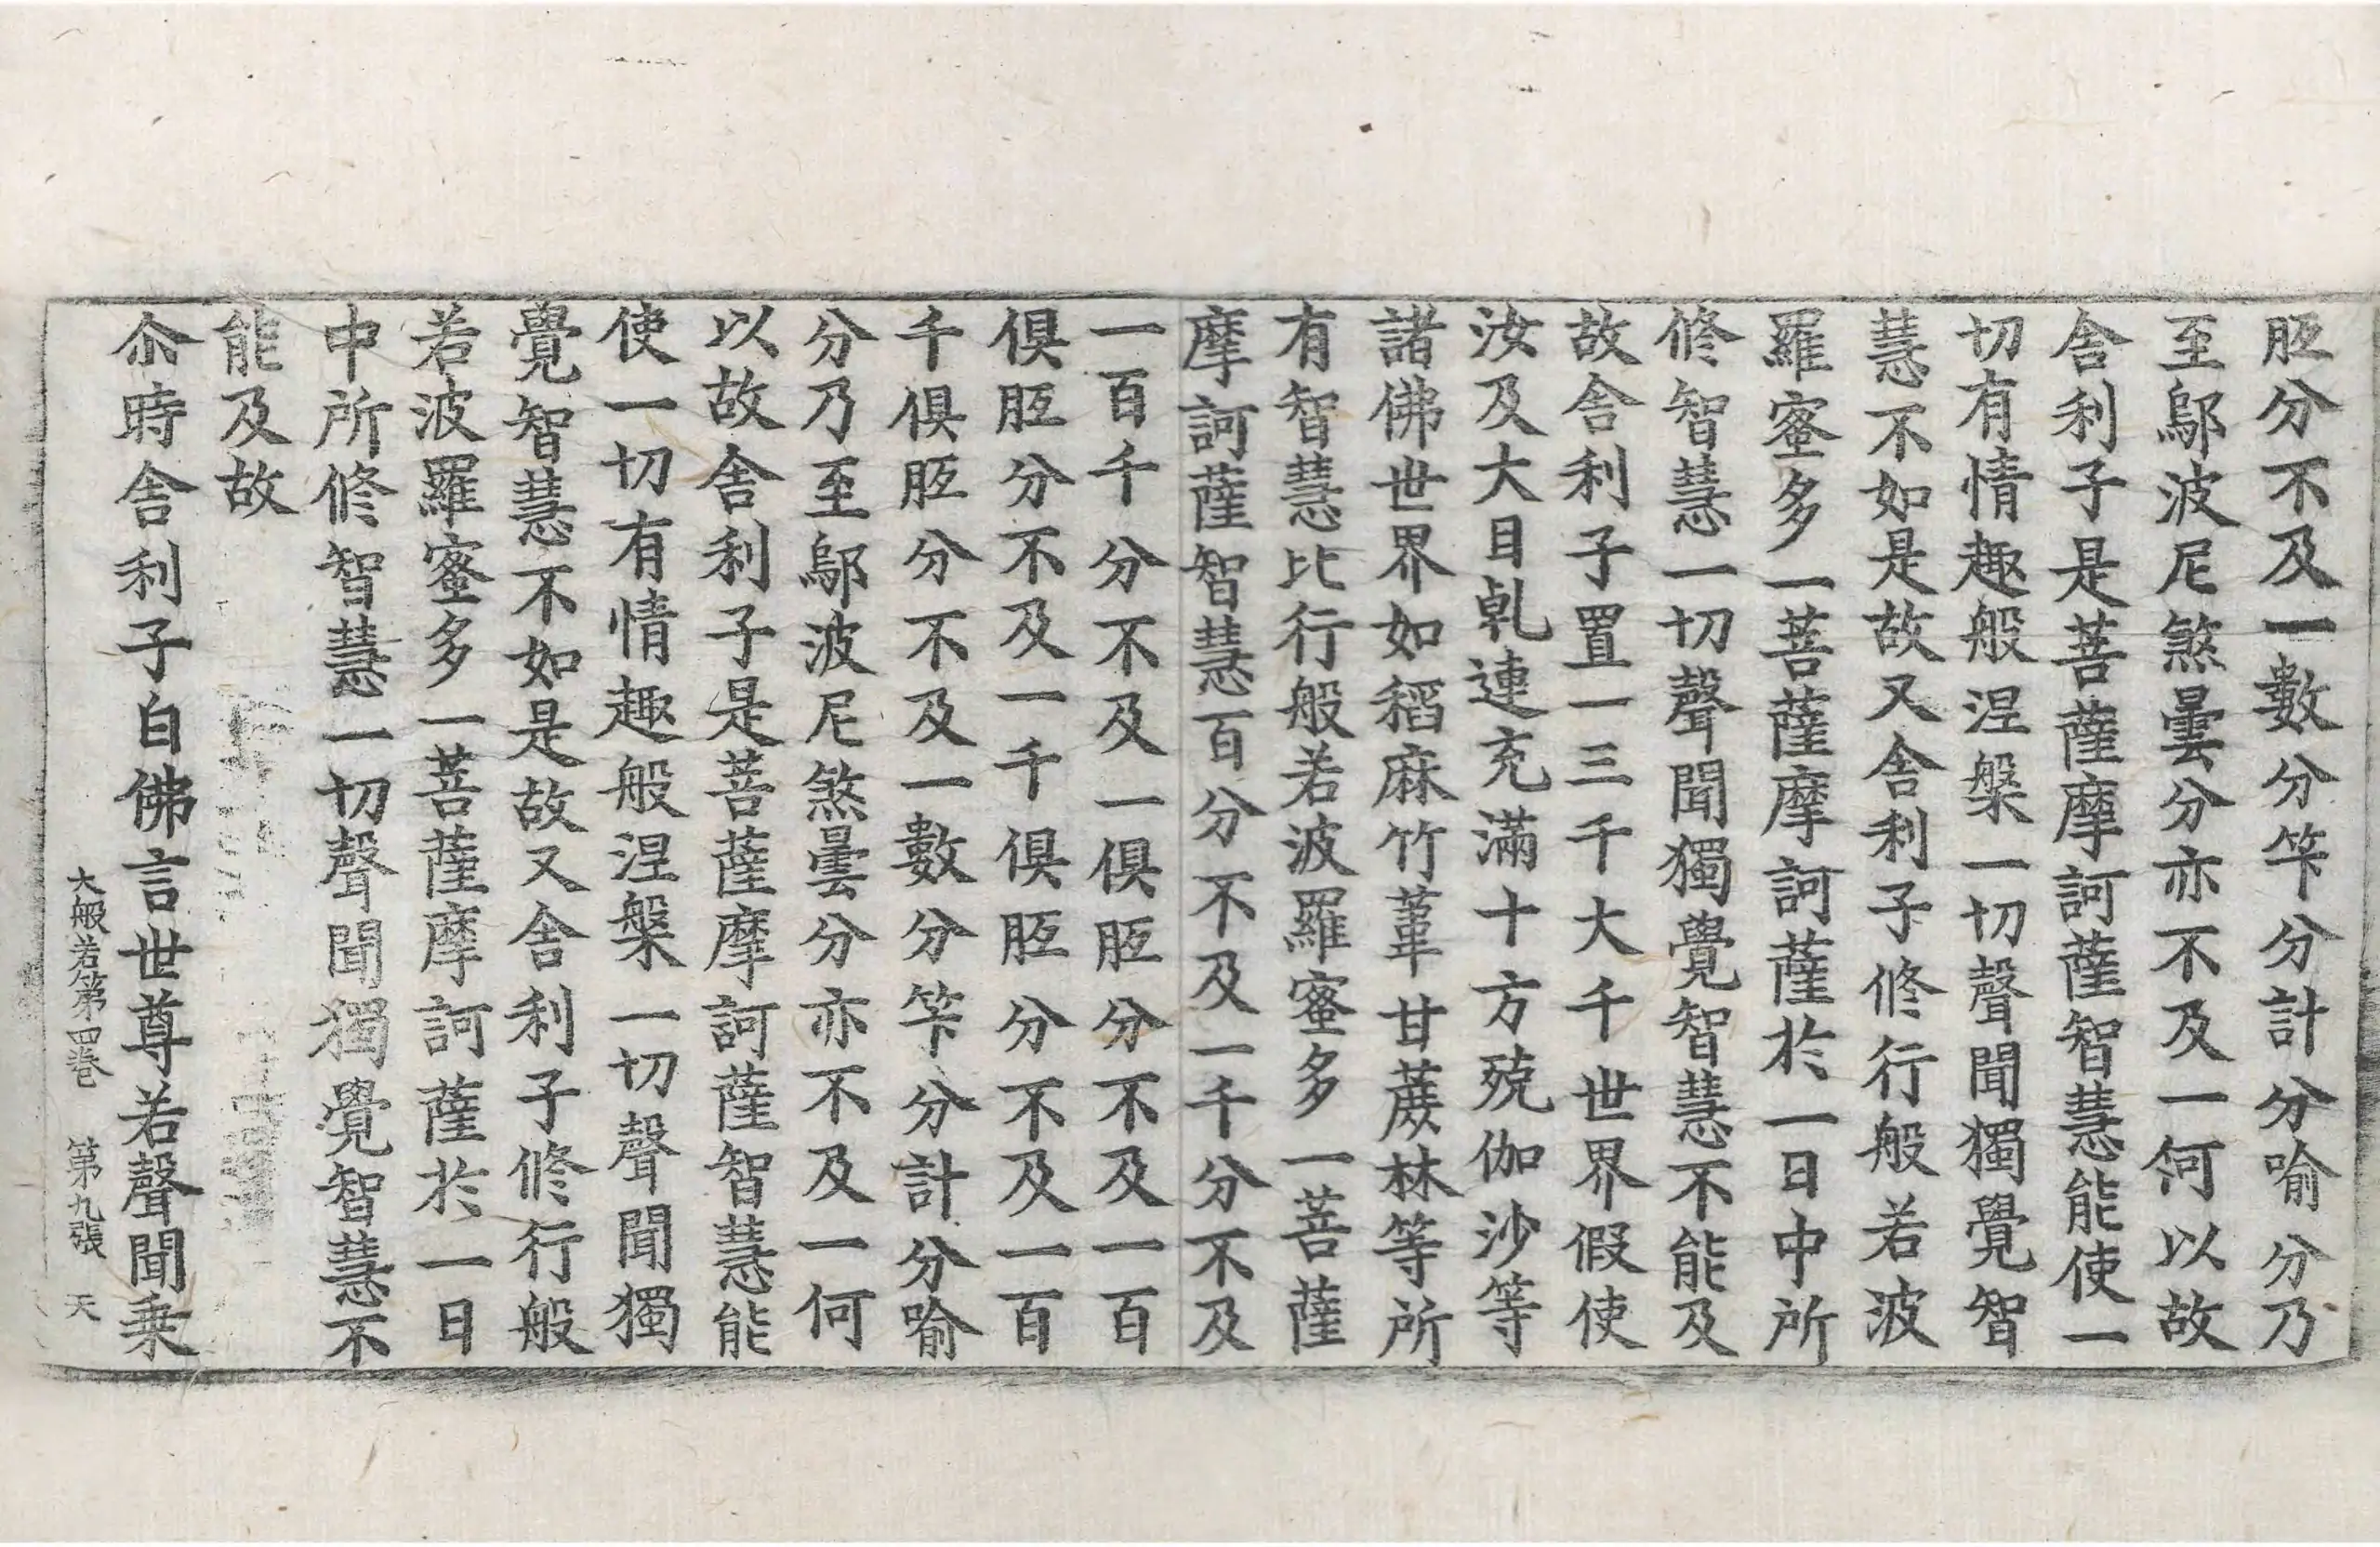 胝分不及一數分筭分計分喻分乃
至鄔波尼煞曇分亦不及一何以故
舍利子是菩薩摩訶薩智慧能使一
切有情趣般涅槃一切聲聞獨覺智
慧不如是故又舍利子修行般若波
羅蜜多一菩薩摩訶薩於一日中所
修智慧一切聲聞獨覺智慧不能及
故舍利子置一三千大千世界假使
汝及大目乹連充滿十方殑伽沙等
諸佛世界如稻麻竹葦甘蔗林等所
有智慧比行般若波羅蜜多一菩薩
摩訶薩智慧百分不及一千分不及
一百千分不及一俱胝分不及一百
俱胝分不及一千俱胝分不及一百
千俱胝分不及一數分筭分計分喻
分乃至鄔波尼煞曇分亦不及一何
以故舍利子是菩薩摩訶薩智慧能
使一切有情趣般涅槃一切聲聞獨
覺智慧不如是故又舍利子修行般
若波羅蜜多一菩薩摩訶薩於一日
中所修智慧一切聲聞獨覺智慧不
能及故
尒時舍利子白佛言世尊若聲聞乗
大般若第四卷 第九張 天